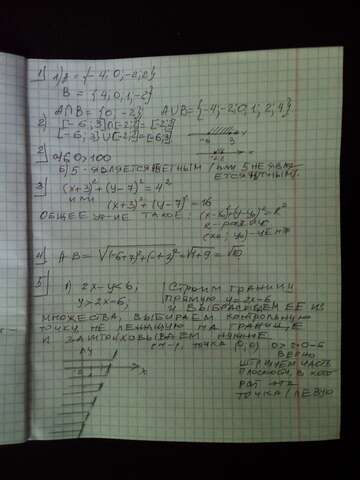 1) 1) A = {-4; 0; -2; 2}
B = {4; 0; 1; -2}
A∩B = {0; -2} A∪B = {-4; -2; 0; 1; 2; 4}
2) [-6; 3]∩[-2; ] = [-2; 3]
[-6; 3]∪[-2; ] = [-6; ]
-6 3
2) а) 60 > 100
б) 5 - является четным (или 5 не явля
ется четным).
3) (x+3)² + (y-7)² = 4²
или (x+3)² + (y-7)² = 16
общее ур-ие такое: (x-x₀)² + (y-y₀)² = R²
R - радиус
(x₀; y₀) - центр
4) AB = √(-6+7)² + = √1+9 = √10
5) 1) 2x-y<6; Строим границу
y>2x-6; прямую y=2x-6
и выбрасываем ее из
множества, выбираем контрольную
точку, не лежащую на границе
и заштриховываем нужное.
точка (0; 0) 0>2·0-6
верно
штрихуем часть
плоскости, в кото
рой
точка (левую
y
x